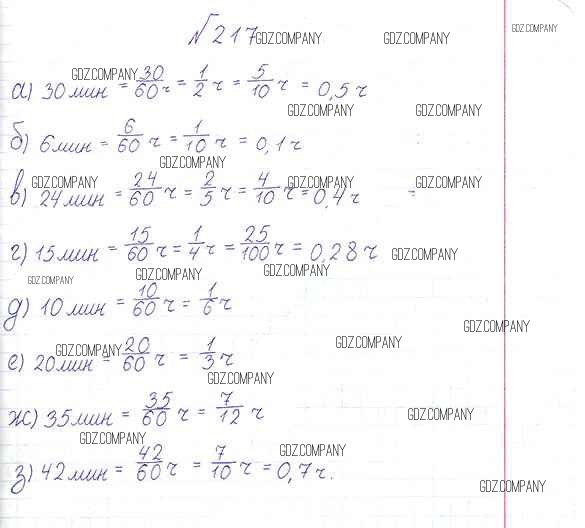 №217 GDZ.COMPANY GDZ.COMPANY GDZ.COMPANY
GDZ.COMPANY
а) 30 мин = 30/60 ч = 1/2 ч = 5/10 ч = 0,5 ч
GDZ.COMPANY GDZ.COMPANY
б) 6 мин = 6/60 ч = 1/10 ч = 0,1 ч
GDZ.COMPANY
GDZ.COMPANY GDZ.COMPANY GDZ.COMPANY
в) 24 мин = 24/60 ч = 2/5 ч = 4/10 ч = 0,4 ч
г) 15 мин = 15/60 ч = 1/4 ч = 25/100 ч = 0,28 ч GDZ.COMPANY
GDZ.COMPANY GDZ.COMPANY GDZ.COMPANY
д) 10 мин = 10/60 ч = 1/6 ч
GDZ.COMPANY
GDZ.COMPANY GDZ.COMPANY
е) 20 мин = 20/60 ч = 1/3 ч
GDZ.COMPANY
ж) 35 мин = 35/60 ч = 7/12 ч GDZ.COMPANY
GDZ.COMPANY GDZ.COMPANY
з) 42 мин = 42/60 ч = 7/10 ч = 0,7 ч.
GDZ.COMPANY